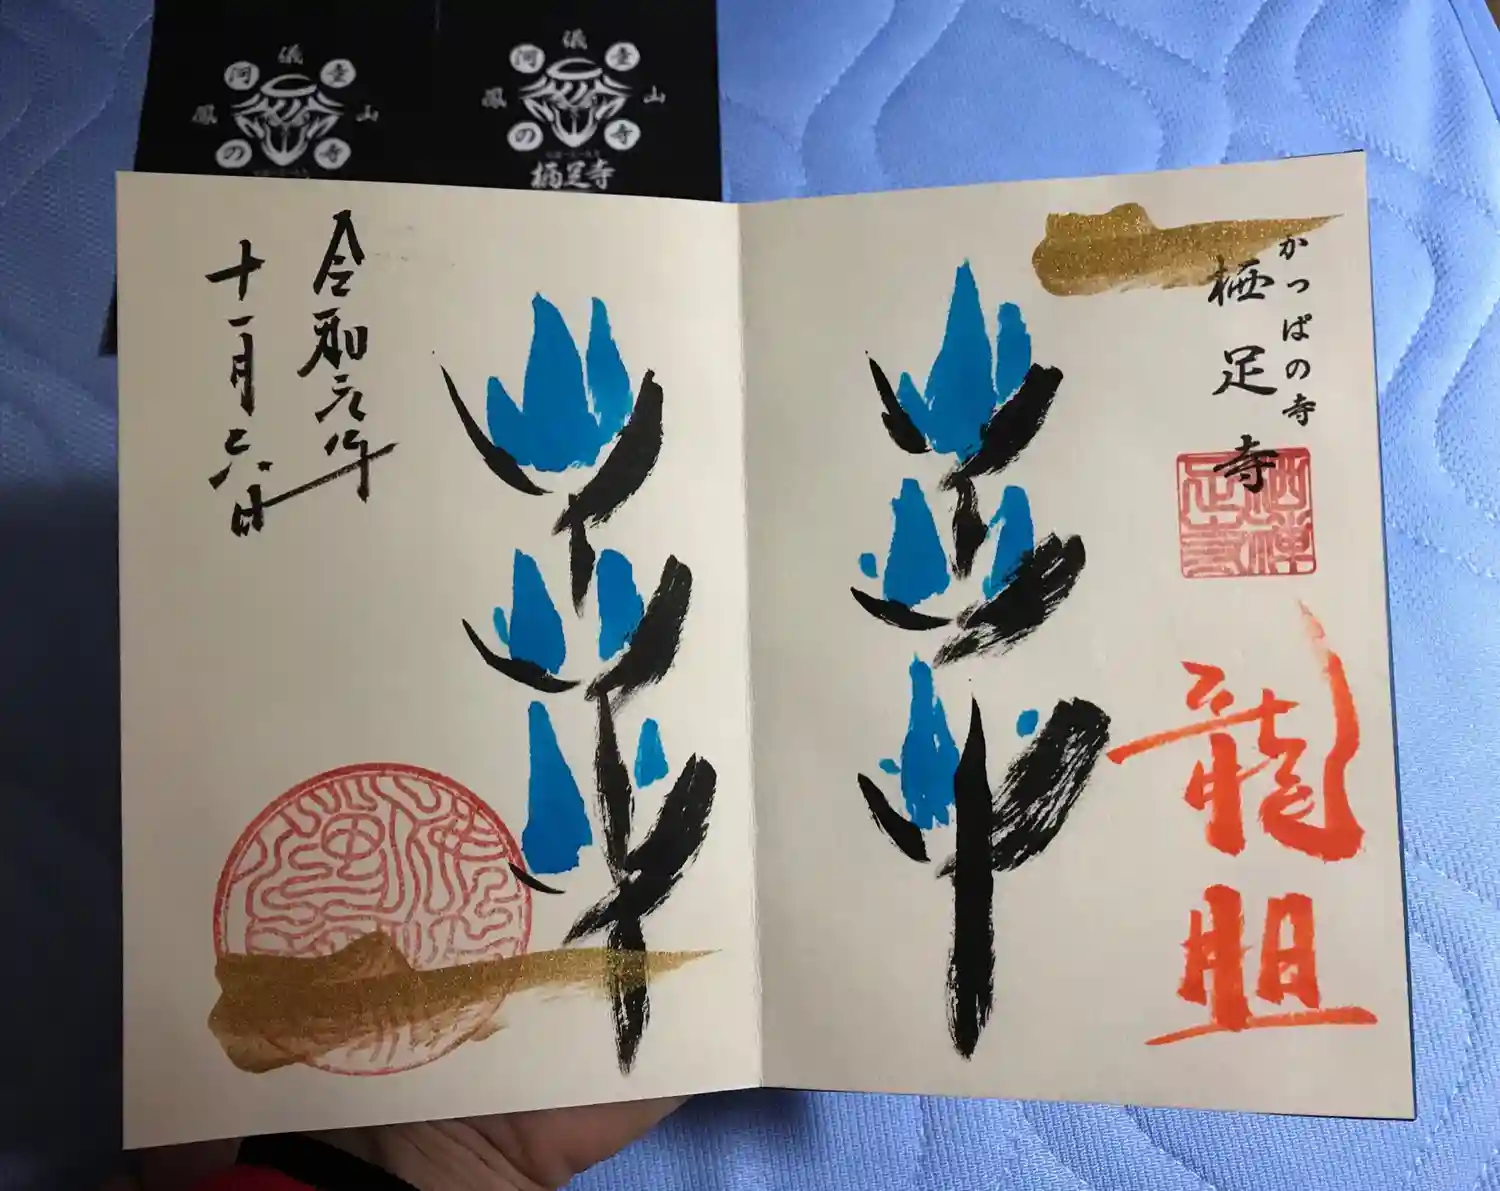 かっぱの寺
栖足寺
龍胆
令和元年
十一月六日
栖禅
足寺
儀
鳳
山
河
童
の
寺
儀
鳳
山
河
童
の
寺
栖足寺